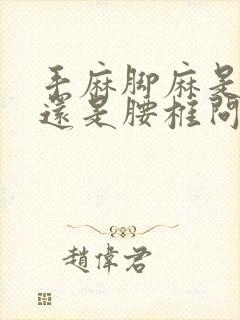 手麻脚麻是
還是腰椎問
趙偉君